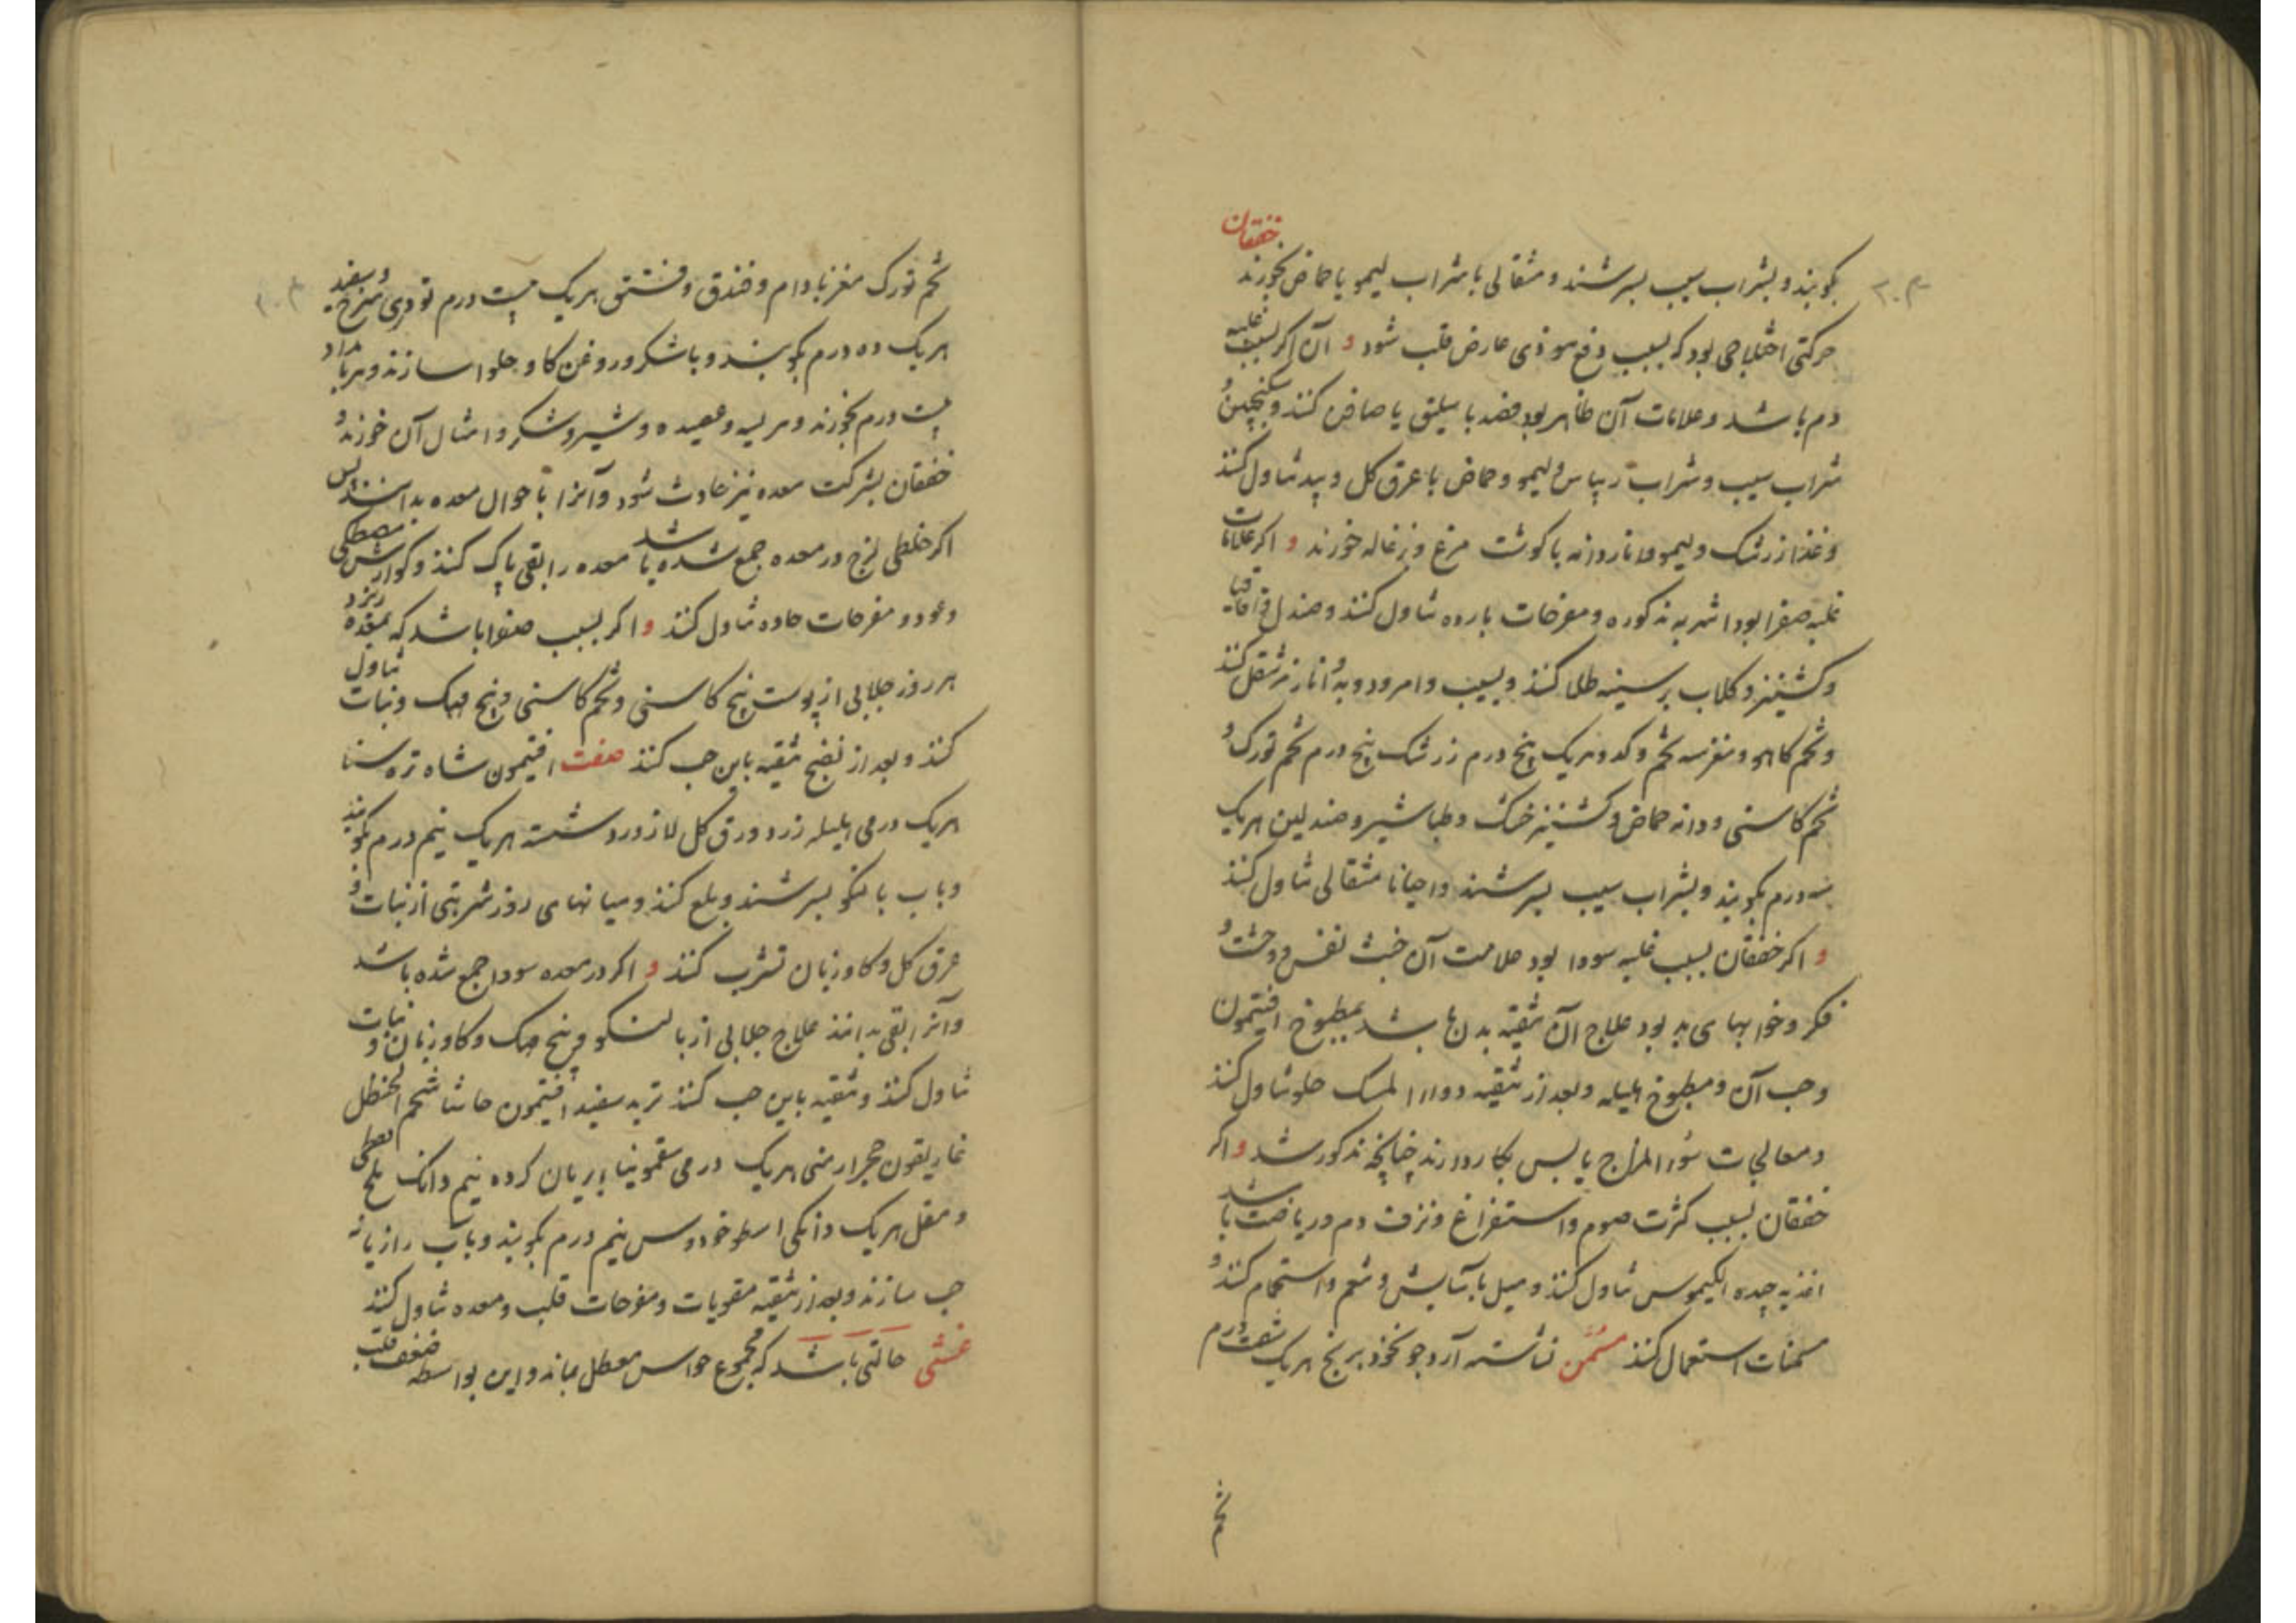 خفقان
بکوبند و بشراب سیب بسرشند و مثقالی با شراب لیمو یا حماض بخورند
حرکتی اختلاجی بود که بسبب دفع موذی عارض قلب شود و آن اکر بسبب غلبه
دم باشد و علامات آن ظاهر بود فصد باسلیق یا صافن کنند و سکنجبین و
شراب سیب و شراب ریباس و لیمو و حماض با عرق کل و بید تناول کنند
و غذا زرشک و لیمو و اناردانه با کوشت مرغ و بزغاله خورند و اکر علامات
غلبه صفرا بود اشربه مذکوره و مفرحات بارده تناول کنند و صندل و اقاقیا
و کشنیز و کلاب بر سینه طلا کنند و بسیب و امرود و به و انار مز تنقل کنند
و تخم کاهو و مغز سه تخم و کدو هریک پنج درم زرشک پنج درم تخم تورک و
تخم کاسنی و دانه حماض و کشنیز خشک و طباشیر و صندلین هریک
سه درم بکوبند و بشراب سیب بسرشند و احیانا مثقالی تناول کنند
و اکر خفقان بسبب غلبه سودا بود علامت آن خبث نفس و وحشت و
فکر و خوابهای بد بود علاج آن تنقیه بدن باشد بمطبوخ افتیمون
و حب آن و مطبوخ هلیله و بعد از تنقیه دواء المسک حلو تناول کنند
و معالجات سوء المزاج یابس بکار دارند چنانچه مذکور شد و اکر
خفقان بسبب کثرت صوم و استفراغ و نزف دم و ریاضت باشد
اغذیه جیده الکیموس تناول کنند و میل بآسایش و تنعم و استحمام کنند و
مسمنات استعمال کنند مسمن نشاسته آرد جو نخود برنج هریک شصت درم
تخم
تخم تورک مغز بادام و فندق و فستق هریک بیست درم تودری سرخ و سفید
هریک ده درم بکوبند و با شکر و روغن کاو حلوا سازند و هر بامداد
بیست درم بخورند و هریسه و عصیده و شیر و شکر و امثال آن خورند و
خفقان بشرکت معده نیز حادث شود و آنرا باحوال معده بدانند پس
اکر خلطی لزج در معده جمع شده باشد معده را بقی پاک کنند و کوارش مصطکی
و عود و مفرحات حاده تناول کنند و اکر بسبب صفرا باشد که بمعده ریزد
هر روز جلابی از پوست بیخ کاسنی و تخم کاسنی و بیخ مهک و نبات تناول
کنند و بعد از نضج تنقیه باین حب کنند صفت افتیمون شاه تره سنا
هریک درمی هلیله زرد ورق کل لازورد شسته هریک نیم درم بکوبند
و باب بالنکو بسرشند و بلع کنند و میانهای روز شربتی از نبات و
عرق کل و کاوزبان تشرب کنند و اکر در معده سودا جمع شده باشد
و آنرا بقی بدانند علاج جلابی از بالنکو و بیخ مهک و کاوزبان و نبات
تناول کنند و تنقیه باین حب کنند تربد سفید افتیمون حاشا شحم الحنظل
غاریقون حجر ارمنی هریک درمی سقمونیا بریان کرده نیم دانک ملح نفطی
و مقل هریک دانکی اسطوخودوس نیم درم بکوبند و باب رازیانه
حب سازند و بعد از تنقیه مقویات و مفرحات قلب و معده تناول کنند
غشی حالتی باشد که مجموع حواس معطل بماند و این بواسطه ضعف قلب